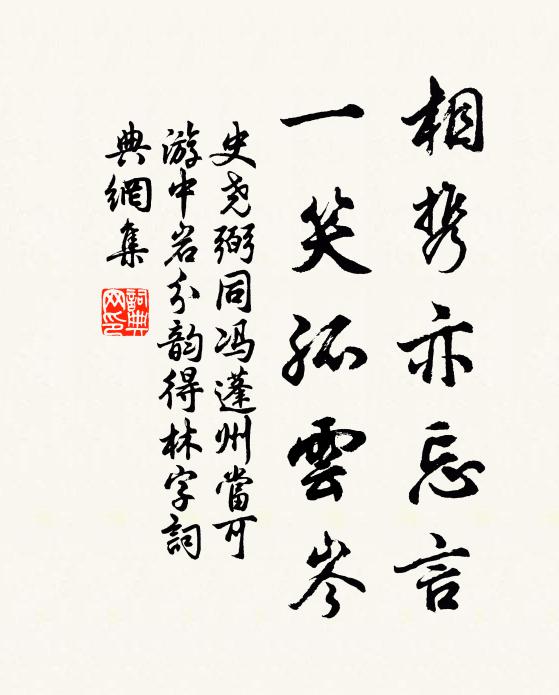 相携亦忘言
一笑孤雲岑
史尧弼同冯蓬州當可
游中岩分韵得林字詞
典網集
詞典
网印